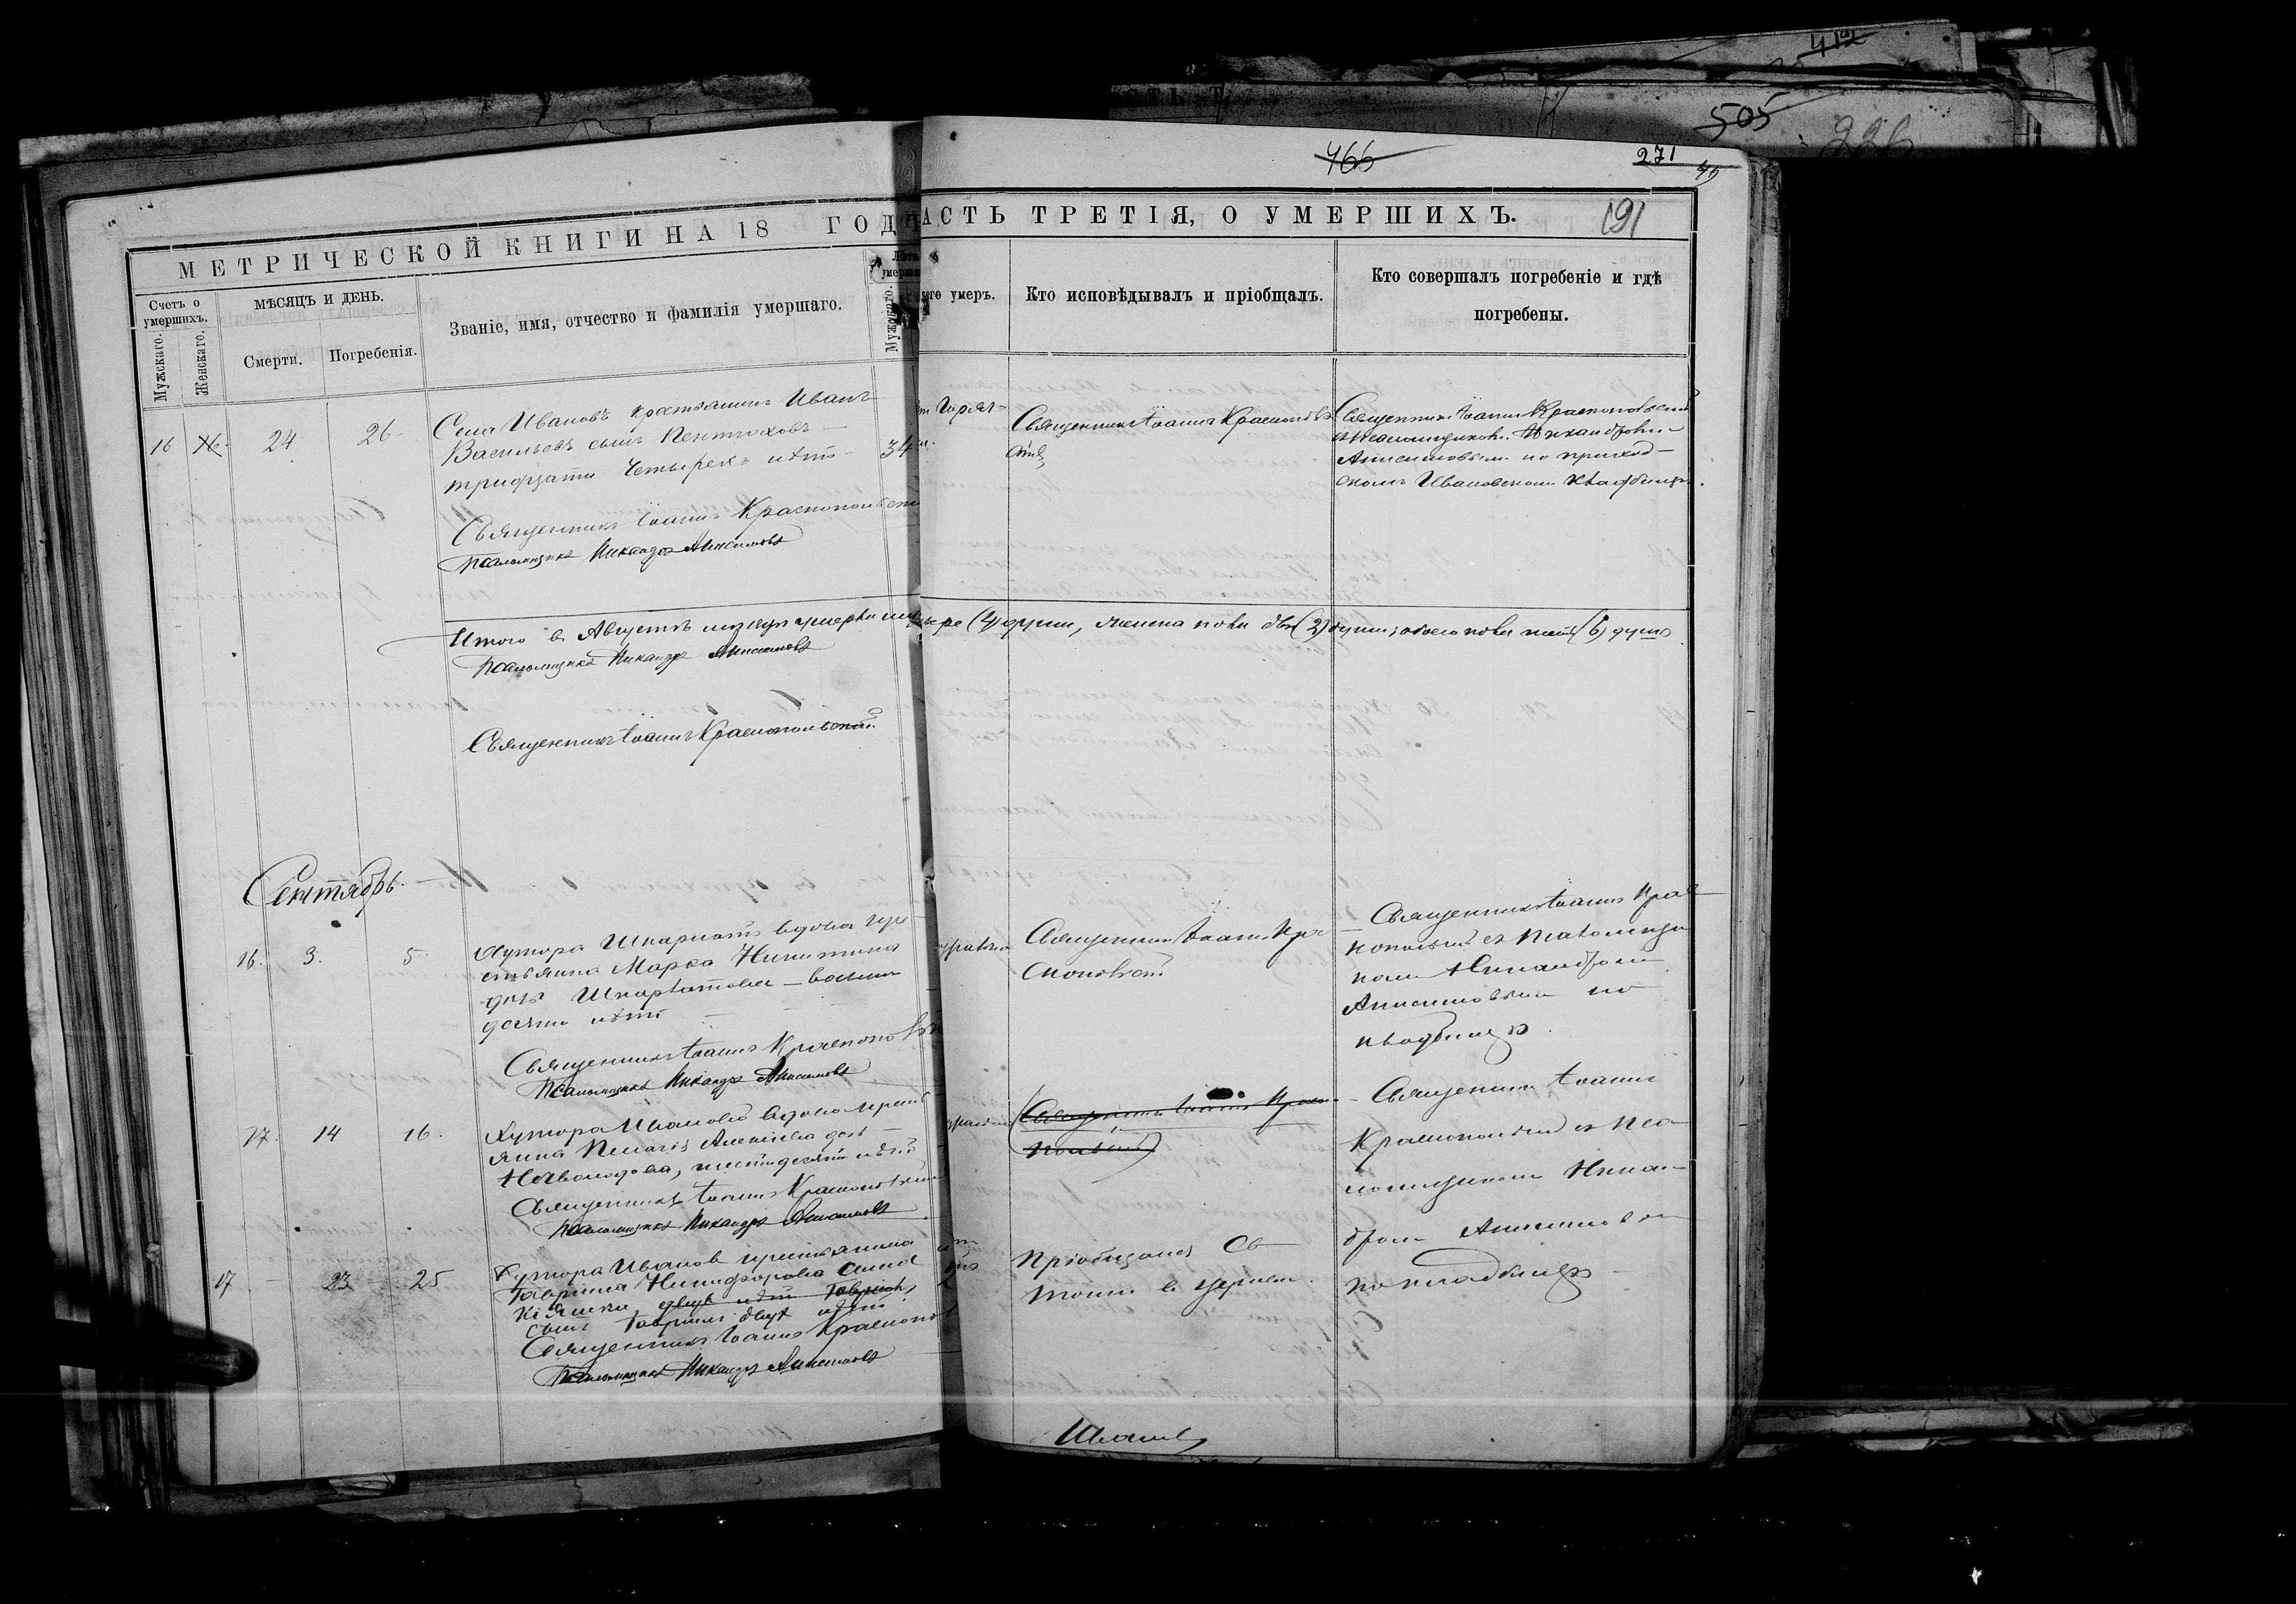 412
505
226
466
271
45
191
МЕТРИЧЕСКОЙ КНИГИ НА 18 ГОДЪ
ЧАСТЬ ТРЕТІЯ, О УМЕРШИХЪ.
Счетъ о умершихъ.
Мужскаго.
Женскаго.
МѢСЯЦЪ И ДЕНЬ.
Смерти.
Погребенія.
Званіе, имя, отчество и фамилія умершаго.
Лѣта умерша
Мужскаго.
чего умеръ.
Кто исповѣдывалъ и пріобщалъ.
Кто совершалъ погребеніе и гдѣ
погребены.
16 24 26 Села Ивановъ крестьянинъ Иванъ
Васильевъ сынъ Пентюховъ
тридцати четырехъ лѣтъ
34
Священникъ Іоаннъ Краснопольскій
Псаломщикъ Никандръ Анисимовъ
Священникъ Іоаннъ Краснополь
скій
Священникъ Іоаннъ Краснопольскій
псаломщикомъ Никандромъ
Анисимовымъ на приход
скомъ Ивановскомъ кладбищѣ.
Итого въ Августѣ мѣсяцѣ умерло (4) души, женска пола двѣ (2) души, обоего пола шесть (6) душъ
Псаломщикъ Никандръ Анисимовъ
Священникъ Іоаннъ Краснопольскій
Сентябрь.
16. 3. 5. Хутора вдова кре
стьянина Марка Никитина
дочь восьми
десяти лѣтъ
Священникъ Іоаннъ Краснополь
Псаломщикъ Никандръ Анисимовъ
Священникъ Іоаннъ Кра
снопольскій
Священникъ Іоаннъ Крас
нопольскій съ псаломщи
комъ Никандромъ
Анисимовымъ на
кладбищѣ.
17. 14 16. Хутора Иванова вдова крестья
янина
шестидесяти лѣтъ
Священникъ Іоаннъ Краснопольскій
Псаломщикъ Никандръ Анисимовъ
Священникъ Іоаннъ
Краснопольскій съ Пса
ломщикомъ Никан
дромъ Анисимовымъ
на кладбищѣ
17 23 25 Хутора Иванов крестьянина
Гавріила Никифорова сына
двухъ лѣтъ Гавріилъ,
сынъ Гавріилъ двухъ лѣтъ
2
Священникъ Іоаннъ Краснополь
Псаломщикъ Никандръ Анисимовъ
Пріобщался Св
Таинъ въ церкви.